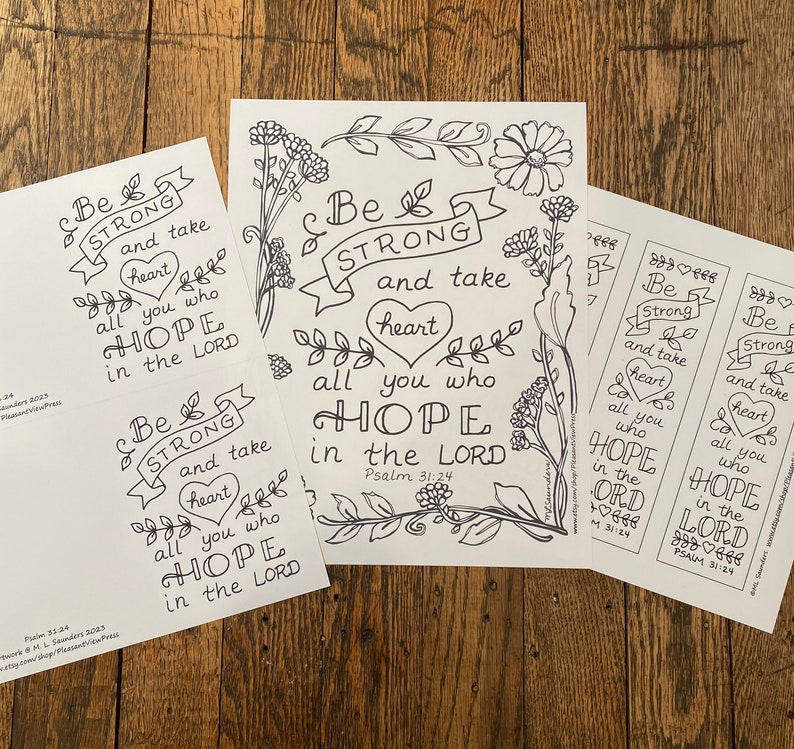 Be
STRONG
and take
heart
all you who
HOPE
in the LORD
31:24
Saunders 2023
PleasantViewPress
Be
STRONG
and take
heart
all you who
HOPE
in the LORD
Psalm 31:24
Artwork @ M. L. Saunders 2023
www.etsy.com/shop/PleasantViewPress
Be
STRONG
and take
heart
all you who
HOPE
in the LORD
Psalm 31:24
MLSaunders
www.etsy.com/shop/PleasantViewPress
HOPE
in the
LORD
31:24
Be
Strong
and take
heart
all you
who
HOPE
in the
LORD
PSALM 31:24
Be
Strong
and take
heart
all you
who
HOPE
in the
LORD
PSALM 31:24
©ML Saunders www.etsy.com/shop/PleasantV